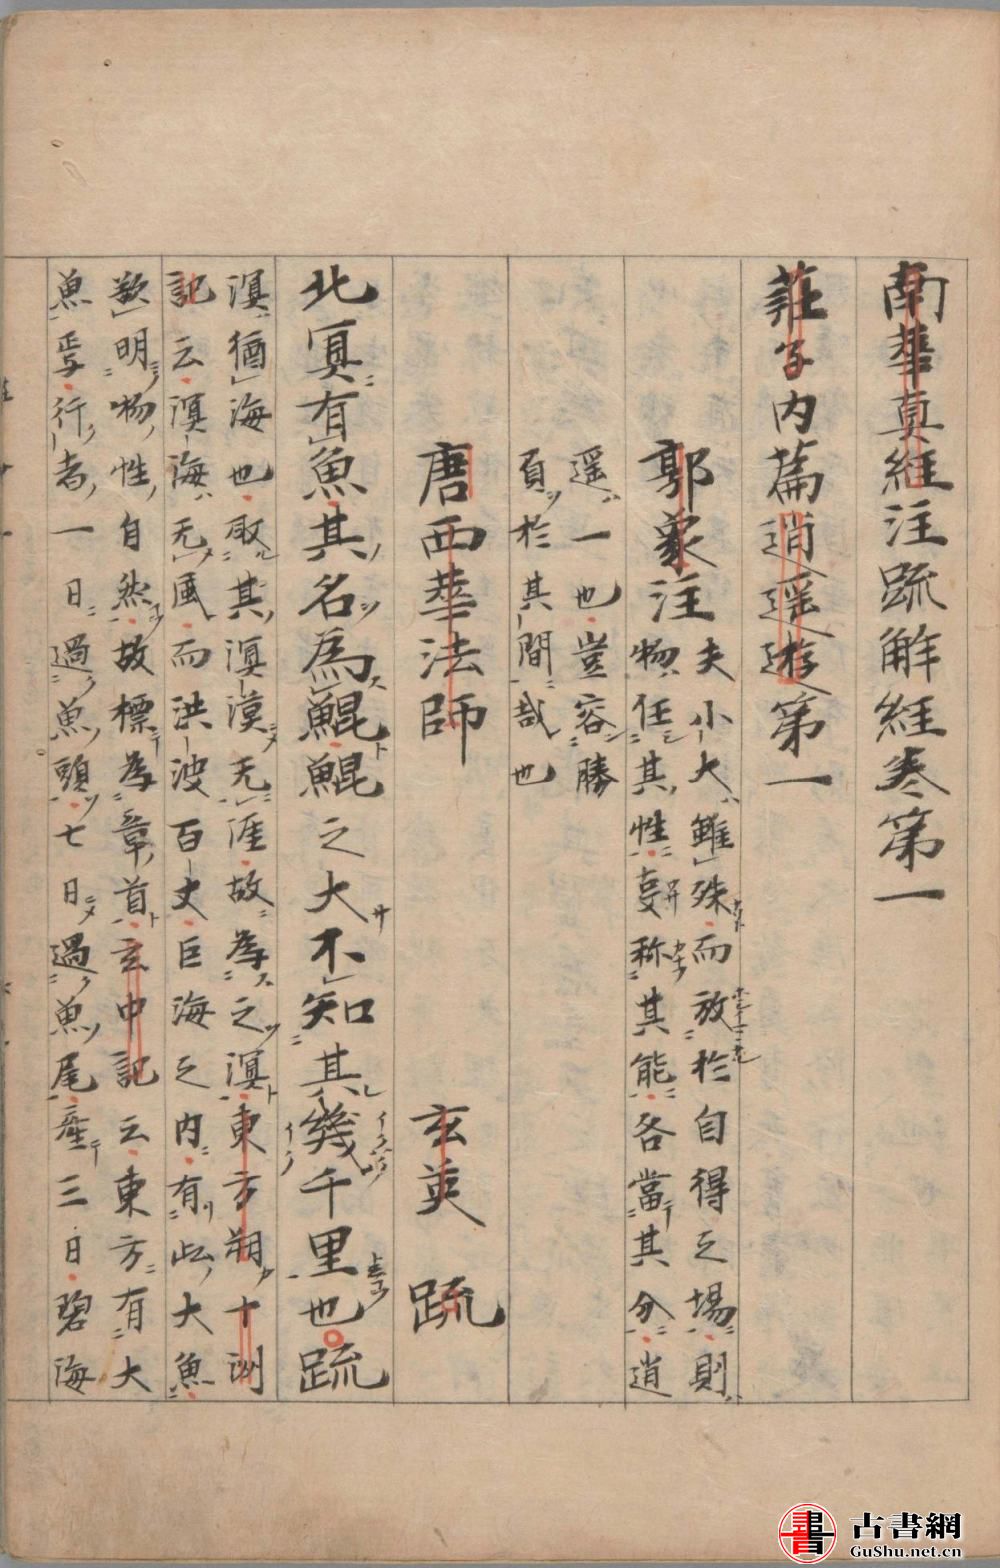 南華真經注疏解經卷第一
莊子内篇逍遥遊第一
郭象注
夫小大雖殊而放於自得之場則
物任其性事称其能各當其分逍
遥一也豈容勝
負於其間哉也
唐西華法師 玄英 疏
北冥有魚其名為鯤鯤之大不知其幾千里也疏
溟猶海也取其溟漠无涯故為之溟東方朔十洲
記云溟海无風而洪波百丈巨海之内有此大魚
欲明物性自然故標為章首玄中記云東方有大
魚焉行者一日過魚頭七日過魚尾產三日碧海
古書網
GuShu.net.cn